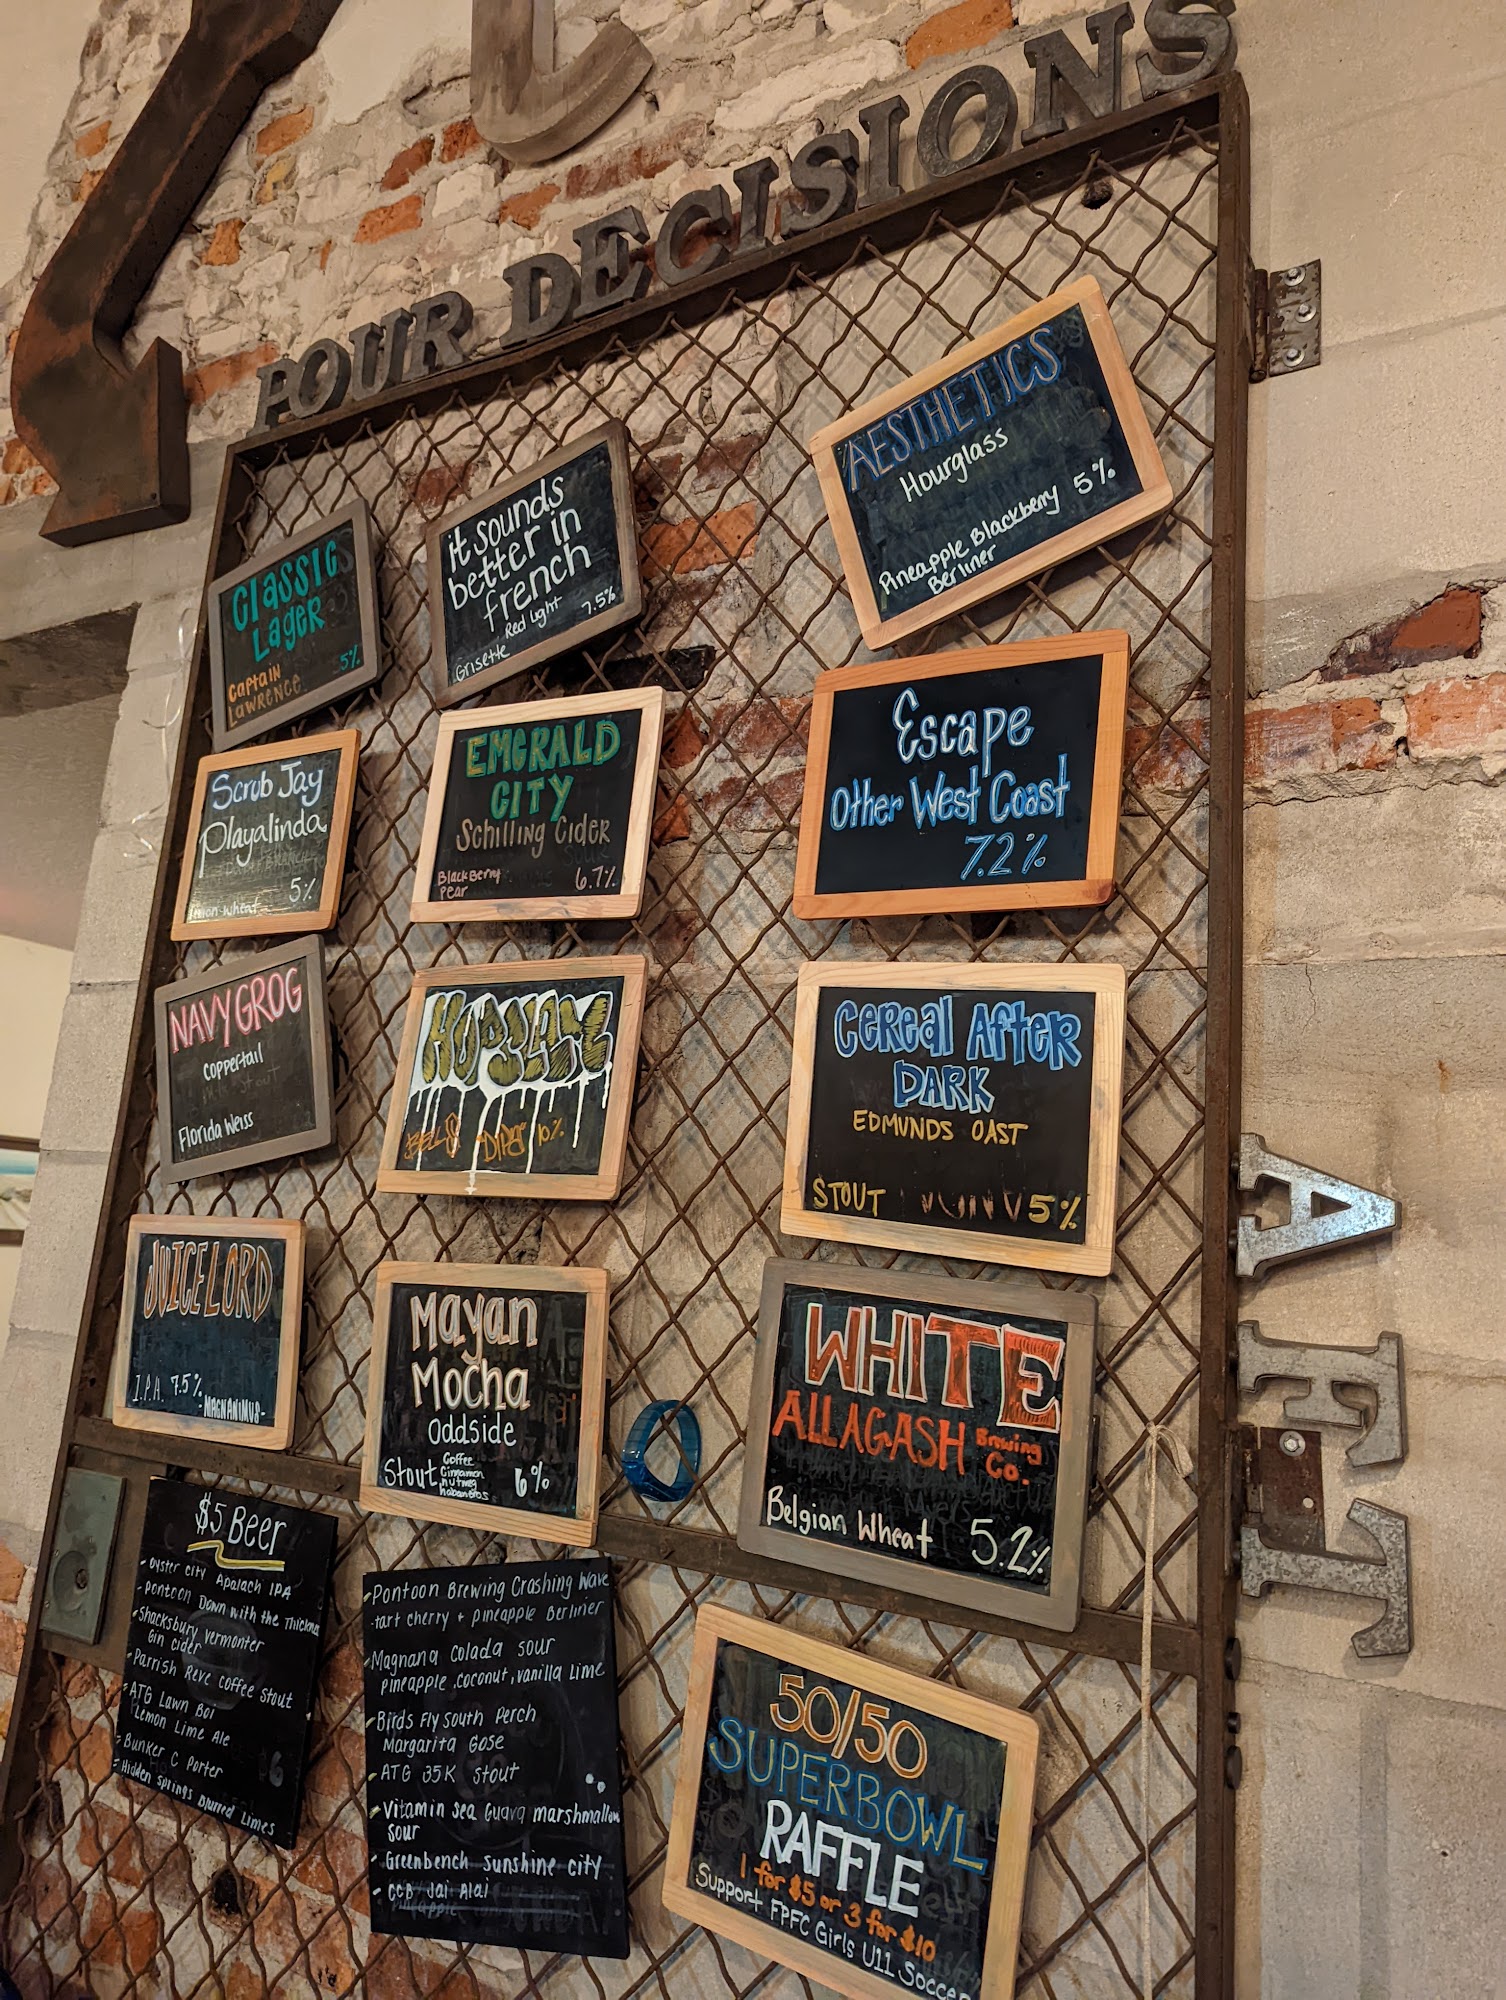 POUR DECISIONS
CLASSIC
LAGER
CAPTAIN
LAWRENCE
5%
it sounds
better in
french
Red Light
7.5%
Grisette
AESTHETICS
Hourglass
Pineapple Blackberry
Berliner
5%
Scrub Jay
Playalinda
5%
EMERALD
CITY
Schilling Cider
BlackBerry
Pear
6.7%
Escape
Other West Coast
7.2%
NAVY GROG
Coppertail
Florida Weiss
HOPSLAM
BELLS DIPA 10%
Cereal After
DARK
EDMUNDS OAST
STOUT
5%
JUICELORD
I.P.A. 7.5%
-MAGNANIMUS-
Mayan
Mocha
Oddside
Stout
Coffee
Cinnamon
nutmeg
habaneros
6%
WHITE
ALLAGASH Brewing
Co.
Belgian Wheat 5.2%
A
F
T
$5 Beer
- Oyster city Apalach IPA
- Pontoon Down with the Thickness
- Shacksbury Vermonter
Gin cider
- Parrish Reve coffee stout
- ATG Lawn Boi
Lemon Lime Ale
- Bunker C Porter
- Hidden Springs Blurred Limes
- Pontoon Brewing Crashing Wave
- tart cherry + pineapple Berliner
- Magnana Colada sour
pineapple, coconut, vanilla lime
- Birds Fly South Perch
Margarita Gose
- ATG 35K Stout
- Vitamin sea Guava marshmallow
sour
- Greenbench sunshine city
- CCB Jai Alai
pineapple
50/50
SUPERBOWL
RAFFLE
1 for $5 or 3 for $10
Support FPFC Girls U11 Soccer